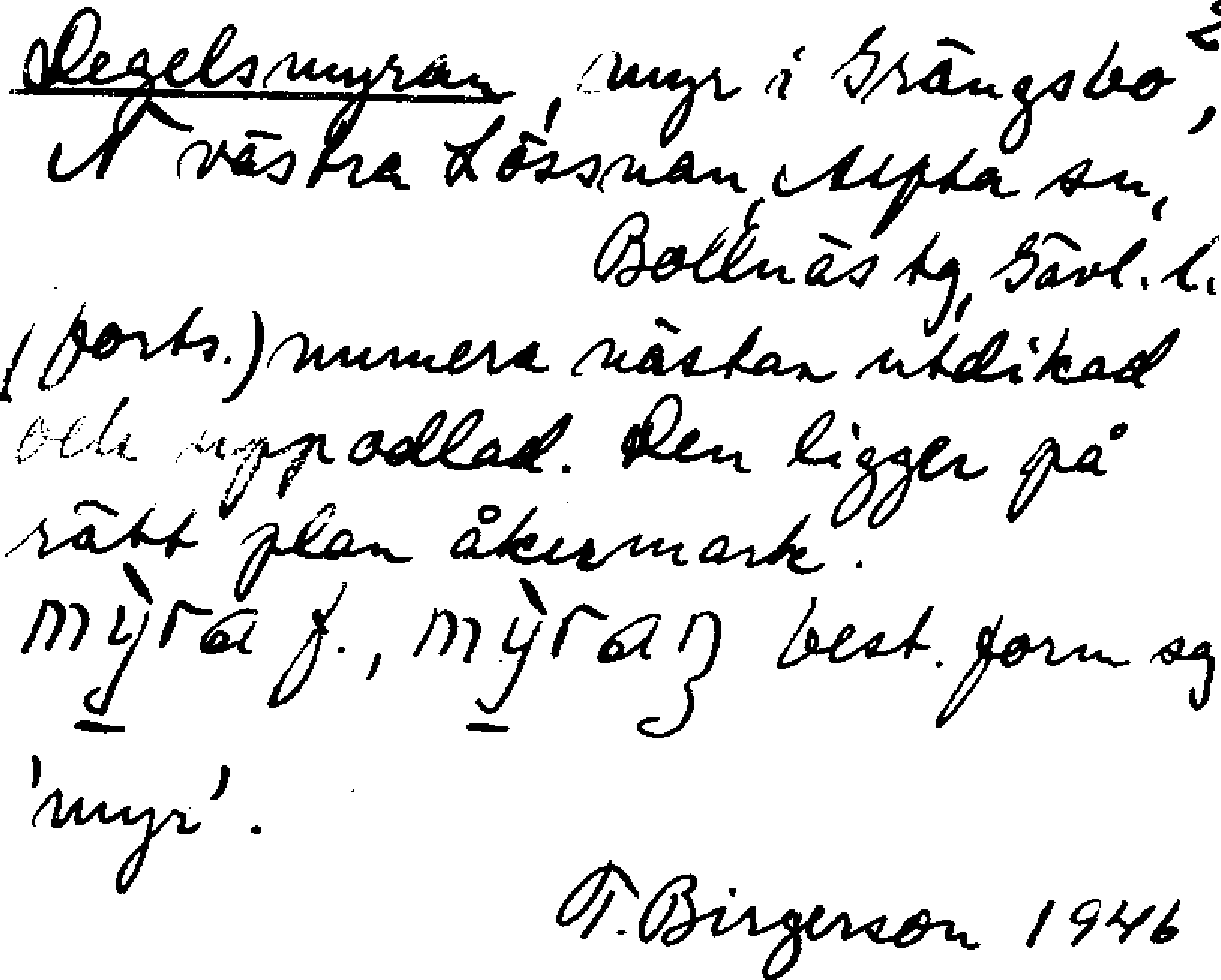 2
Degelsmyran, myr i Grängsbo,
N västra Lössnan, Alfta sn,
Bollnäs tg, Gävl. l.
(forts.) numera nästan utdikad
och uppodlad. Den ligger på
rätt plan åkermark.
mỳra f., mỳraɳ best. form sg
'myr'.
T. Birgerson 1946